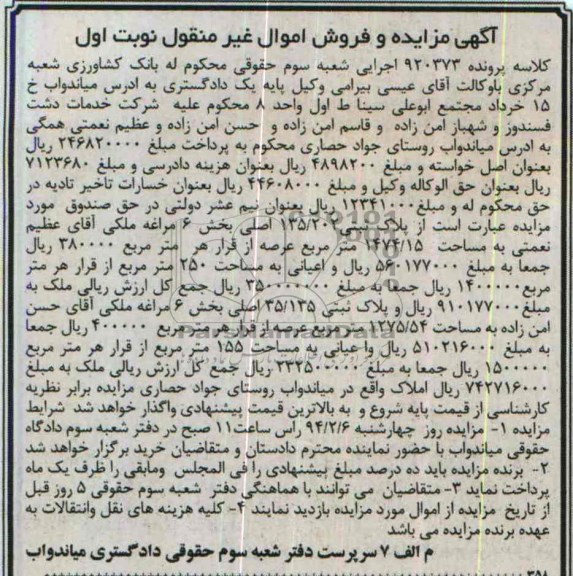 آگهی مزایده و فروش اموال غیر منقول نوبت اول
کلاسه پرونده ۹۲۰۳۷۳ اجرایی شعبه سوم حقوقی محکوم له بانک کشاورزی شعبه
مرکزی باوکالت آقای عیسی بیرامی وکیل پایه یک دادگستری به ادرس میاندواب خ
۱۵ خرداد مجتمع ابوعلی سینا ط اول واحد ۸ محکوم علیه شرکت خدمات دشت
فسندوز و شهباز امن زاده و قاسم امن زاده و حسن امن زاده و عظیم نعمتی همگی
به ادرس میاندواب روستای جواد حصاری محکوم به پرداخت مبلغ ۲۴۶۸۲۰۰۰۰ ریال
بعنوان اصل خواسته و مبلغ ۴۸۹۸۲۰۰ ریال بعنوان هزینه دادرسی و مبلغ ۷۱۲۳۶۸۰
ریال بعنوان حق الوکاله وکیل و مبلغ ۴۴۶۰۸۰۰۰ ریال بعنوان خسارات تاخیر تادیه در
حق محکوم له و مبلغ۱۲۳۴۱۰۰۰ ریال بعنوان نیم عشر دولتی در حق صندوق مورد
مزایده عبارت است از پلاک ثبتی ۱۳۵/۲۰۲ اصلی بخش ۶ مراغه ملکی آقای عظیم
نعمتی به مساحت ۱۴۷۴/۱۵ متر مربع عرصه از قرار هر متر مربع ۳۸۰۰۰۰ ریال
جمعا به مبلغ ۵۶۰۱۷۷۰۰۰ ریال و اعیانی به مساحت ۲۵۰ متر مربع از قرار هر متر
مربع۱۴۰۰۰۰۰ ریال جمعا به مبلغ ۳۵۰۰۰۰۰۰۰ ریال جمع کل ارزش ریالی ملک به
مبلغ۹۱۰۱۷۷۰۰۰ ریال و پلاک ثبتی ۳۵/۱۳۵ اصلی بخش ۶ مراغه ملکی آقای حسن
امن زاده به مساحت ۱۲۷۵/۵۴ متر مربع عرصه از قرار هر متر مربع ۴۰۰۰۰۰ ریال جمعا
به مبلغ ۵۱۰۲۱۶۰۰۰ ریال واعیانی به مساحت ۱۵۵ متر مربع از قرار هر متر مربع
۱۵۰۰۰۰۰ ریال جمعا به مبلغ ۲۳۲۵۰۰۰۰۰ ریال جمع کل ارزش ریالی ملک به مبلغ
۷۴۲۷۱۶۰۰۰ ریال املاک واقع در میاندواب روستای جواد حصاری مزایده برابر نظریه
کارشناسی از قیمت پایه شروع و به بالاترین قیمت پیشنهادی واگذار خواهد شد شرایط
مزایده ۱- مزایده روز چهارشنبه ۹۴/۲/۶ راس ساعت۱۱ صبح در دفتر شعبه سوم دادگاه
حقوقی میاندواب با حضور نماینده محترم دادستان و متقاضیان خرید برگزار خواهد شد
۲- برنده مزایده باید ده درصد مبلغ پیشنهادی را فی المجلس ومابقی را ظرف یک ماه
پرداخت نماید ۳- متقاضیان می توانند با هماهنگی دفتر شعبه سوم حقوقی ۵ روز قبل
از تاریخ مزایده از اموال مورد مزایده بازدید نمایند ۴- کلیه هزینه های نقل وانتقالات به
عهده برنده مزایده می باشد
م الف ۷ سرپرست دفتر شعبه سوم حقوقی دادگستری میاندواب
۳۵۸
ParsNamadData